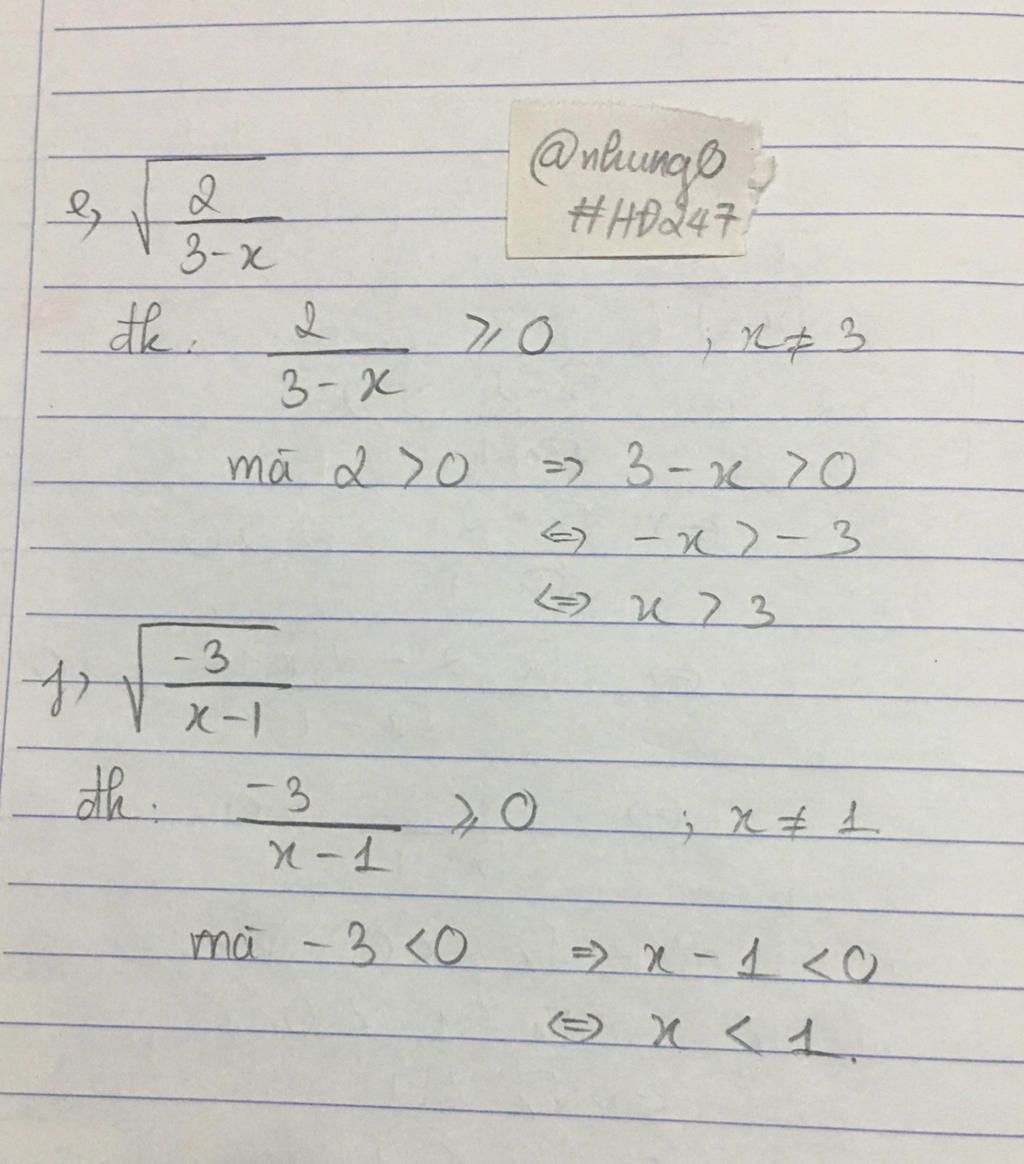 @nhungB
#HĐ247
e, √(2/(3-x))
đk: 2/(3-x) ⩾ 0 ; x ≠ 3
mà 2 > 0 => 3 - x > 0
<=> -x > -3
<=> x > 3
f, √(-3/(x-1))
đk: -3/(x-1) ⩾ 0 ; x ≠ 1
mà -3 < 0 => x - 1 < 0
<=> x < 1.